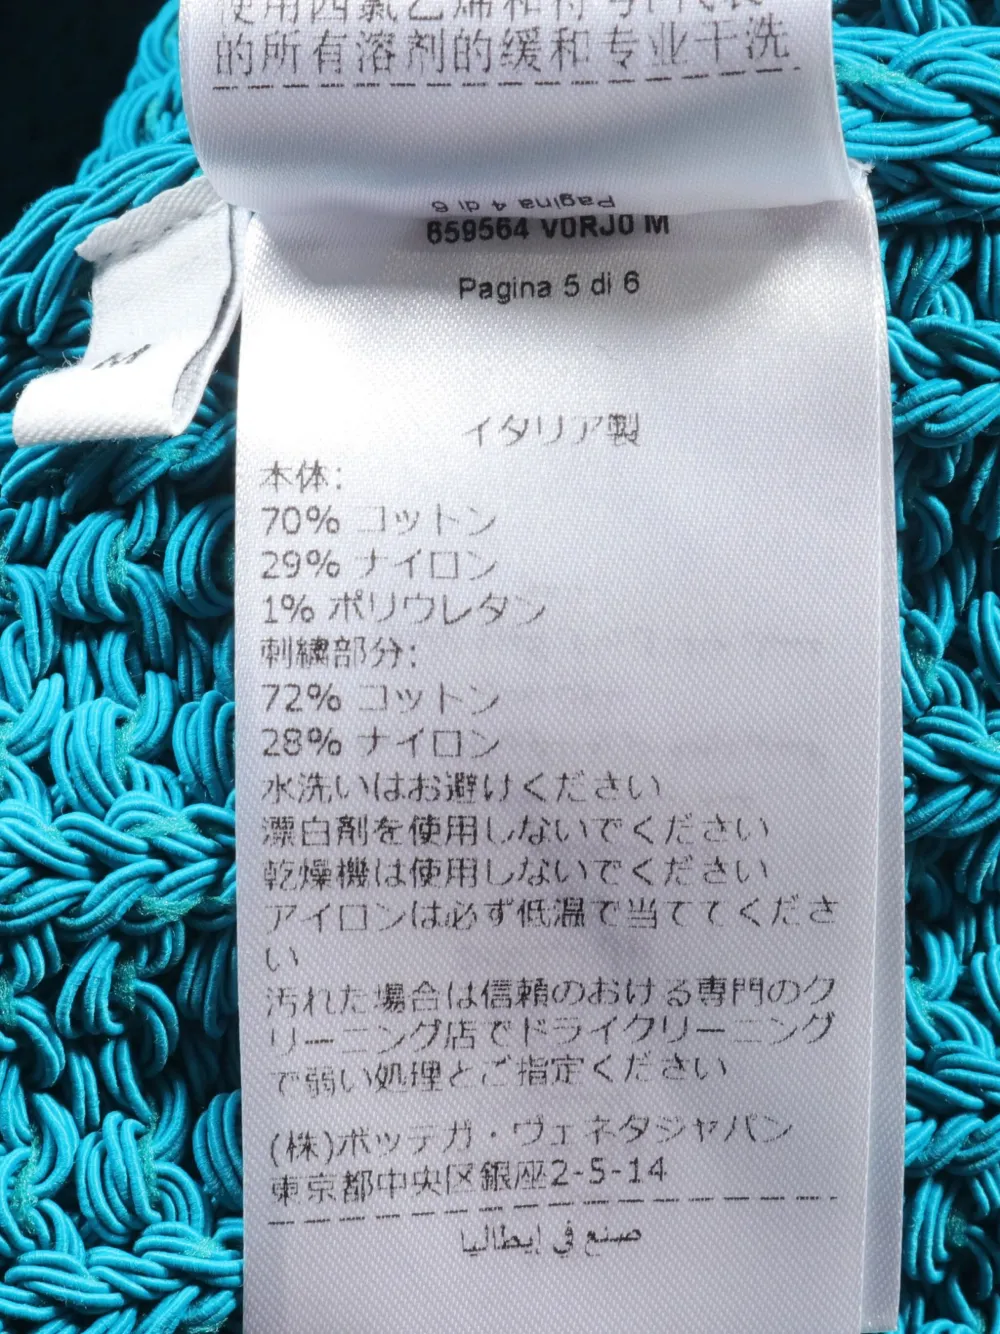 使用四氯乙烯和符号F代表
的所有溶剂的缓和专业干洗
Pagina 4 di 6
659564 V0RJ0 M
Pagina 5 di 6
M
イタリア製
本体:
70% コットン
29% ナイロン
1% ポリウレタン
刺繍部分:
72% コットン
28% ナイロン
水洗いはお避けください
漂白剤を使用しないでください
乾燥機は使用しないでください
アイロンは必ず低温で当ててくださ
い
汚れた場合は信頼のおける専門のク
リーニング店でドライクリーニング
で弱い処理とご指定ください
(株)ボッテガ・ヴェネタジャパン
東京都中央区銀座2-5-14
صنع في إيطاليا